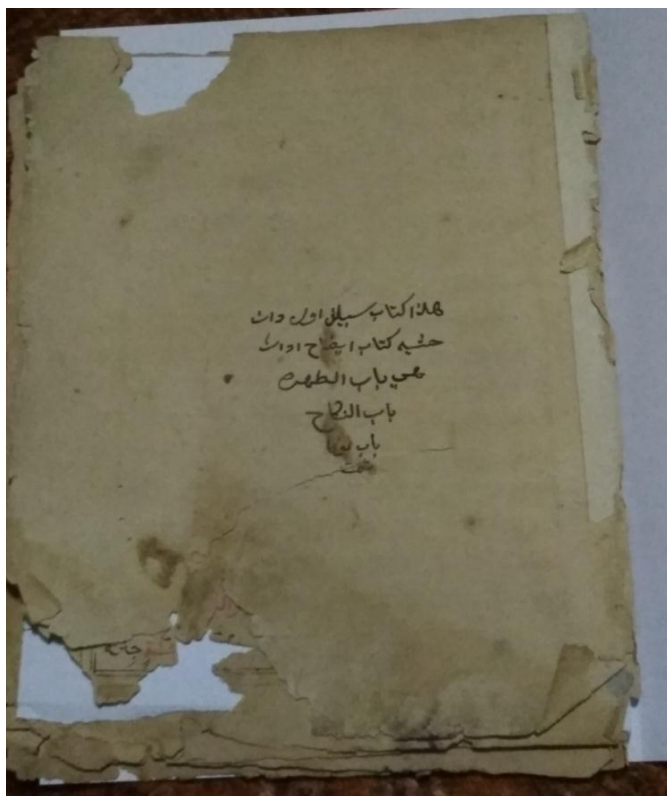 هذا كتاب سبيل اول دان
حشيه كتاب ايضاح ادان
هي باب الطهره
باب النكاح
باب